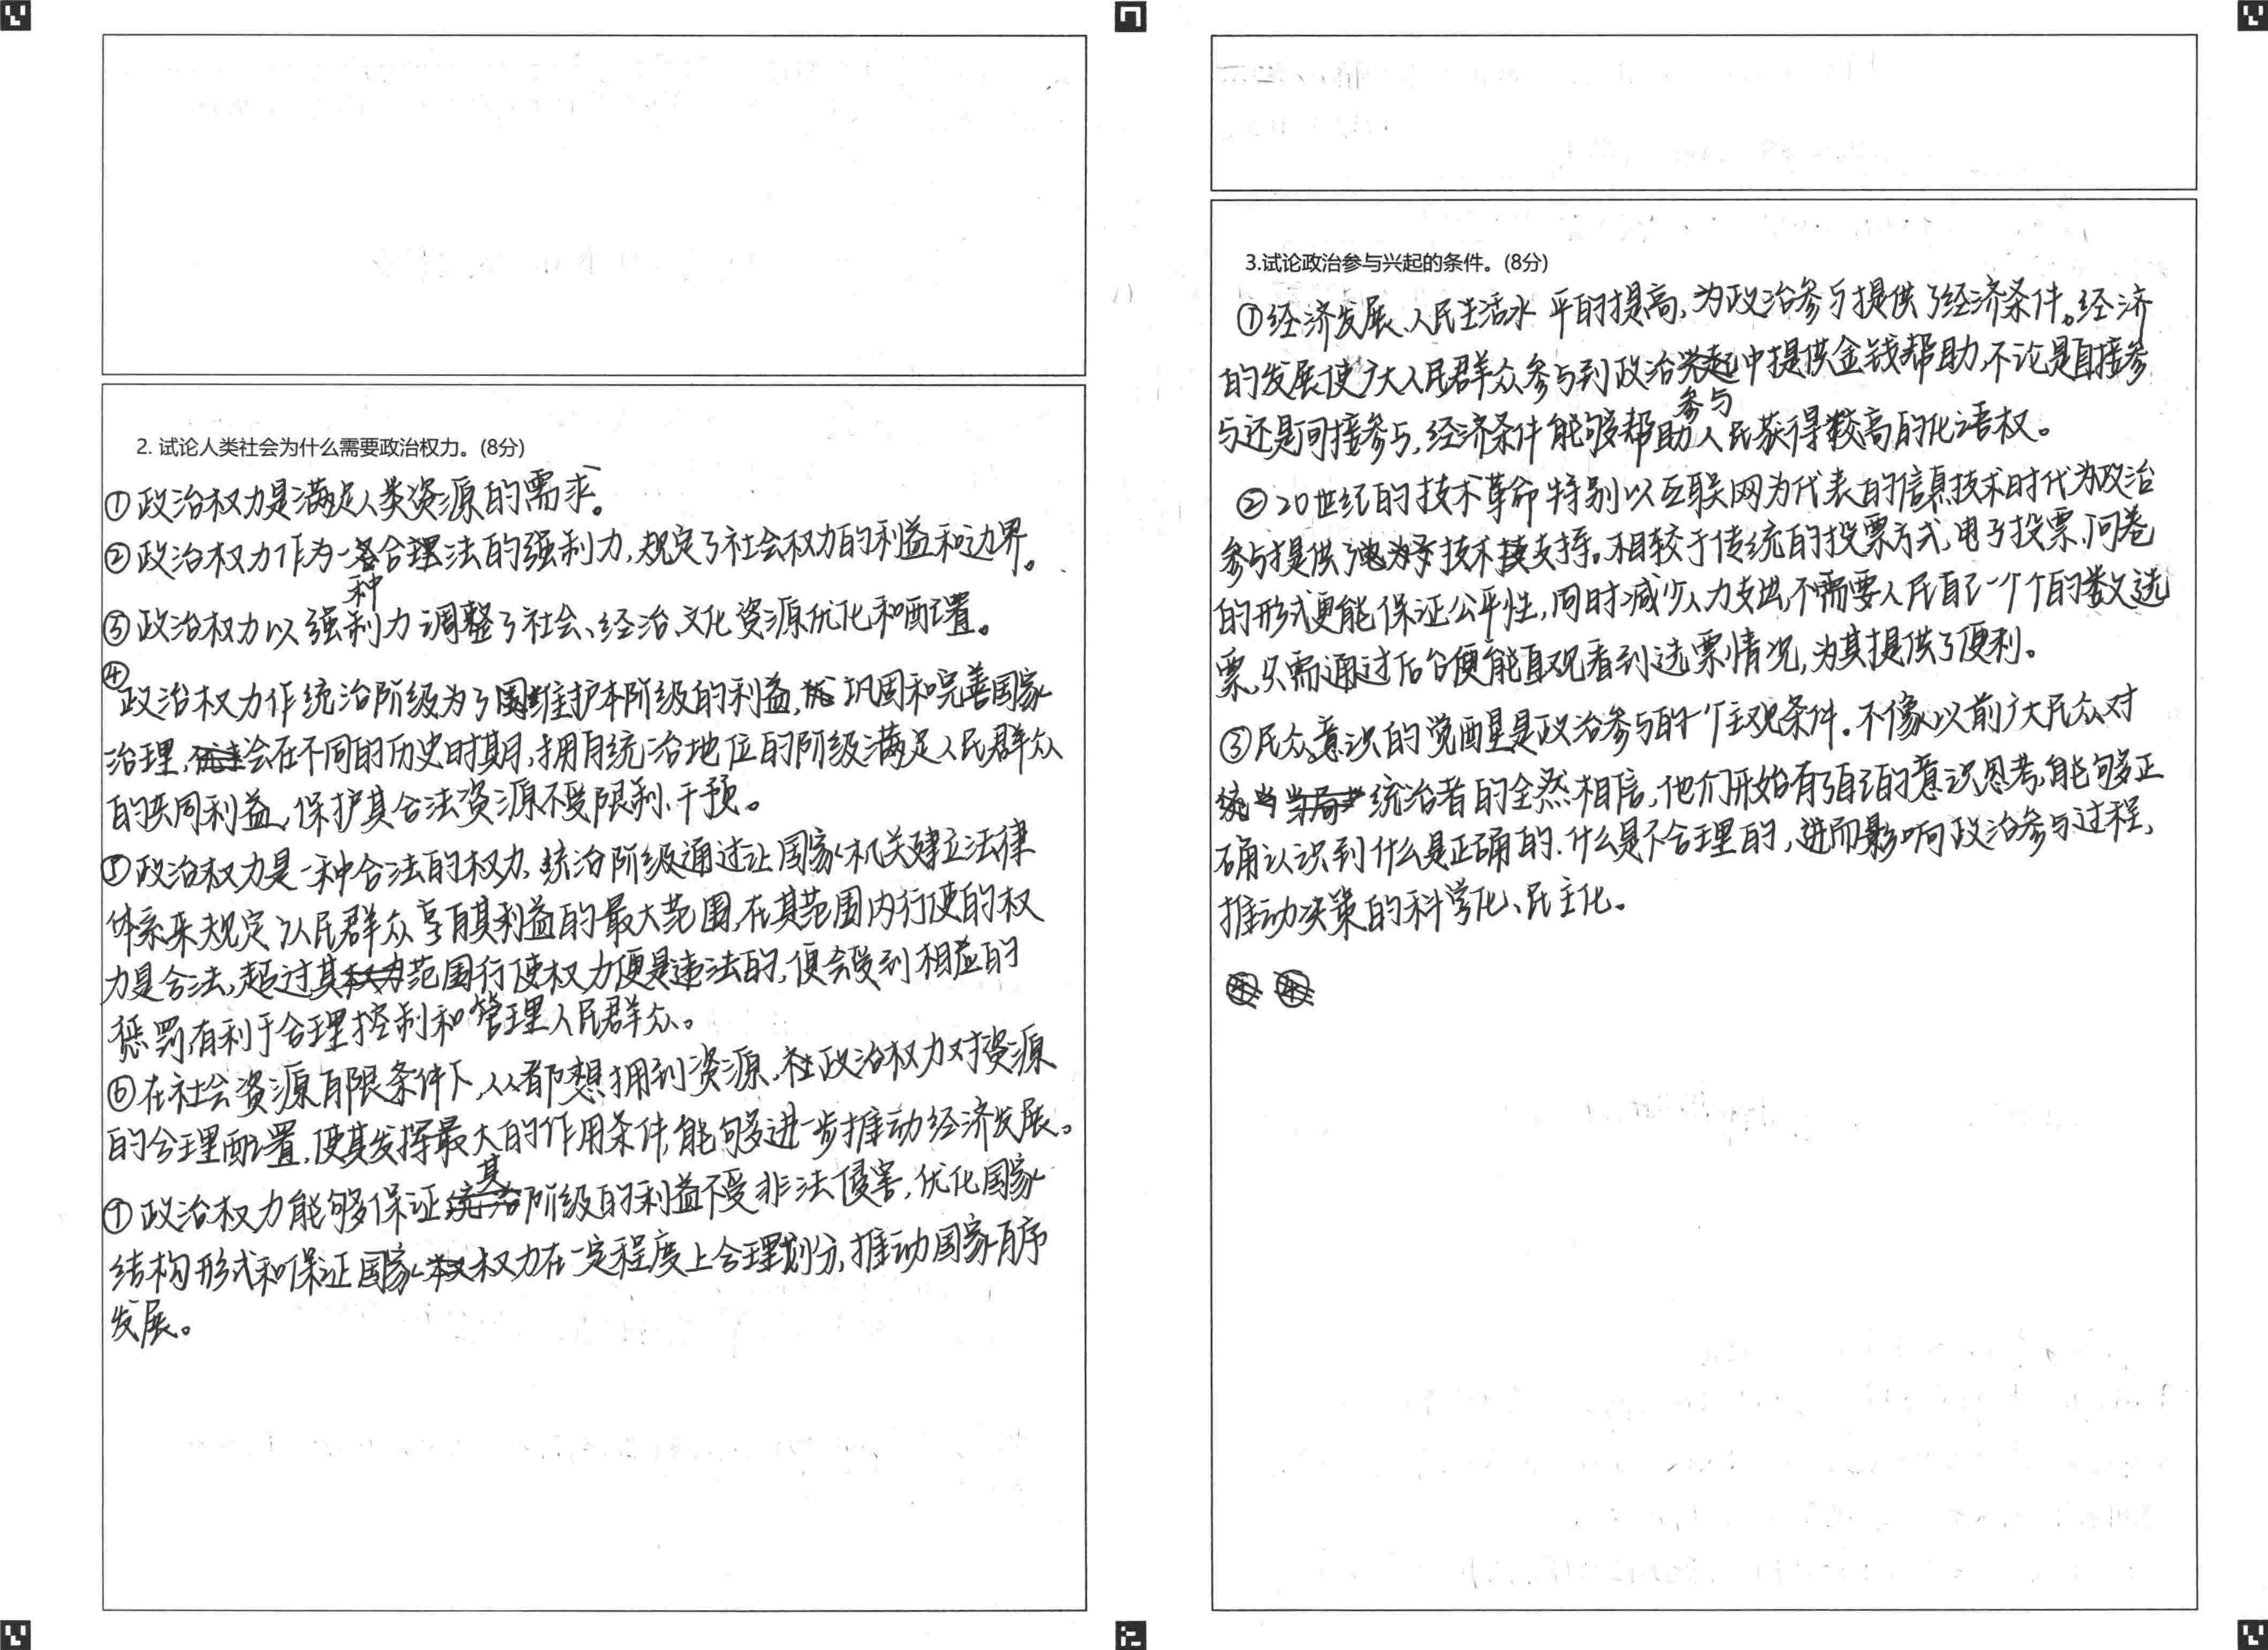 2. 试论人类社会为什么需要政治权力。(8分)
①政治权力是满足人类资源的需求。
②政治权力作为一种合法的强制力,规定了社会权力的利益和边界。
③政治权力以强制力调整了社会、经治、文化资源优化和配置。
④政治权力作统治阶级为了维护本阶级的利益,巩固和完善国家
治理,会在不同的历史时期,拥有统治地位的阶级满足人民群众
的共同利益,保护其合法资源不受限制、干预。
⑤政治权力是一种合法的权力,统治阶级通过让国家机关建立法律
体系来规定人民群众享有其利益的最大范围,在其范围内行使的权
力是合法,超过其范围行使权力便是违法的,便会受到相应的
惩罚,有利于合理控制和管理人民群众。
⑥在社会资源有限条件下,人人都想拥到资源,政治权力对资源
的合理配置,使其发挥最大的作用条件,能够进一步推动经济发展。
⑦政治权力能够保证其阶级的利益不受非法侵害,优化国家
结构形式和保证国家权力在一定程度上合理划分,推动国家有序
发展。
3.试论政治参与兴起的条件。(8分)
①经济发展、人民生活水平的提高,为政治参与提供了经济条件。经济
的发展使广大人民群众参与到政治参与中提供金钱帮助,不论是直接参
与还是间接参与,经济条件能够帮助人民获得较高的化语权。
②20世纪的技术革命特别以互联网为代表的信息技术时代为政治
参与提供了技术支持。相较于传统的投票方式,电子投票、问卷
的形式更能保证公平性,同时减少人力支出,不需要人民自己一个个的数选
票,只需通过后台便能直观看到选票情况,为其提供了便利。
③民众意识的觉醒是政治参与的一个主观条件。不像以前广大民众对
统治者的全然相信,他们开始有自己的意识思考,能够正
确认识到什么是正确的、什么是不合理的,进而影响政治参与过程,
推动决策的科学化、民主化。